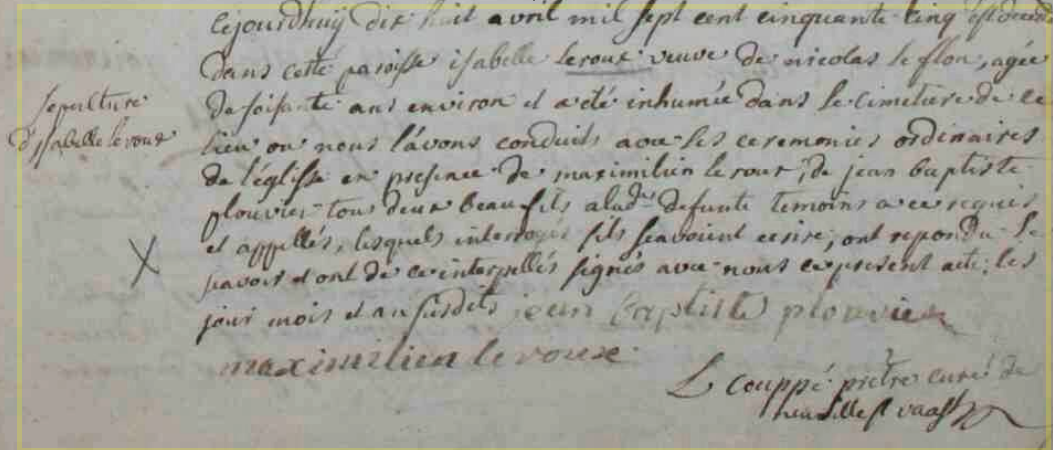 sepulture
d'isabelle leroux
cejourdhuÿ dix huit avril mil sept cent cinquante cinq est decedé
dans cette paroisse isabelle leroux veuve de nicolas le flon, agée
de soisante ans environ et a eté inhumée dans le cimetiere de ce
lieu ou nous l'avons conduits avec les ceremonies ordinaires
de l'églisse en presence de maximilien le roux, de jean baptiste
plouvier tous deux beau fils a lad. defunte temoins a ce requis
et appellés, lesquels interrogés s'ils scavoient ecrire, ont repondu le
scavoir et ont de ce interpellés signés avec nous ce present acte, les
jour mois et an susdits jean baptiste plouvier
maximilien le roux
L couppé prêtre curé de
neuville st vaast